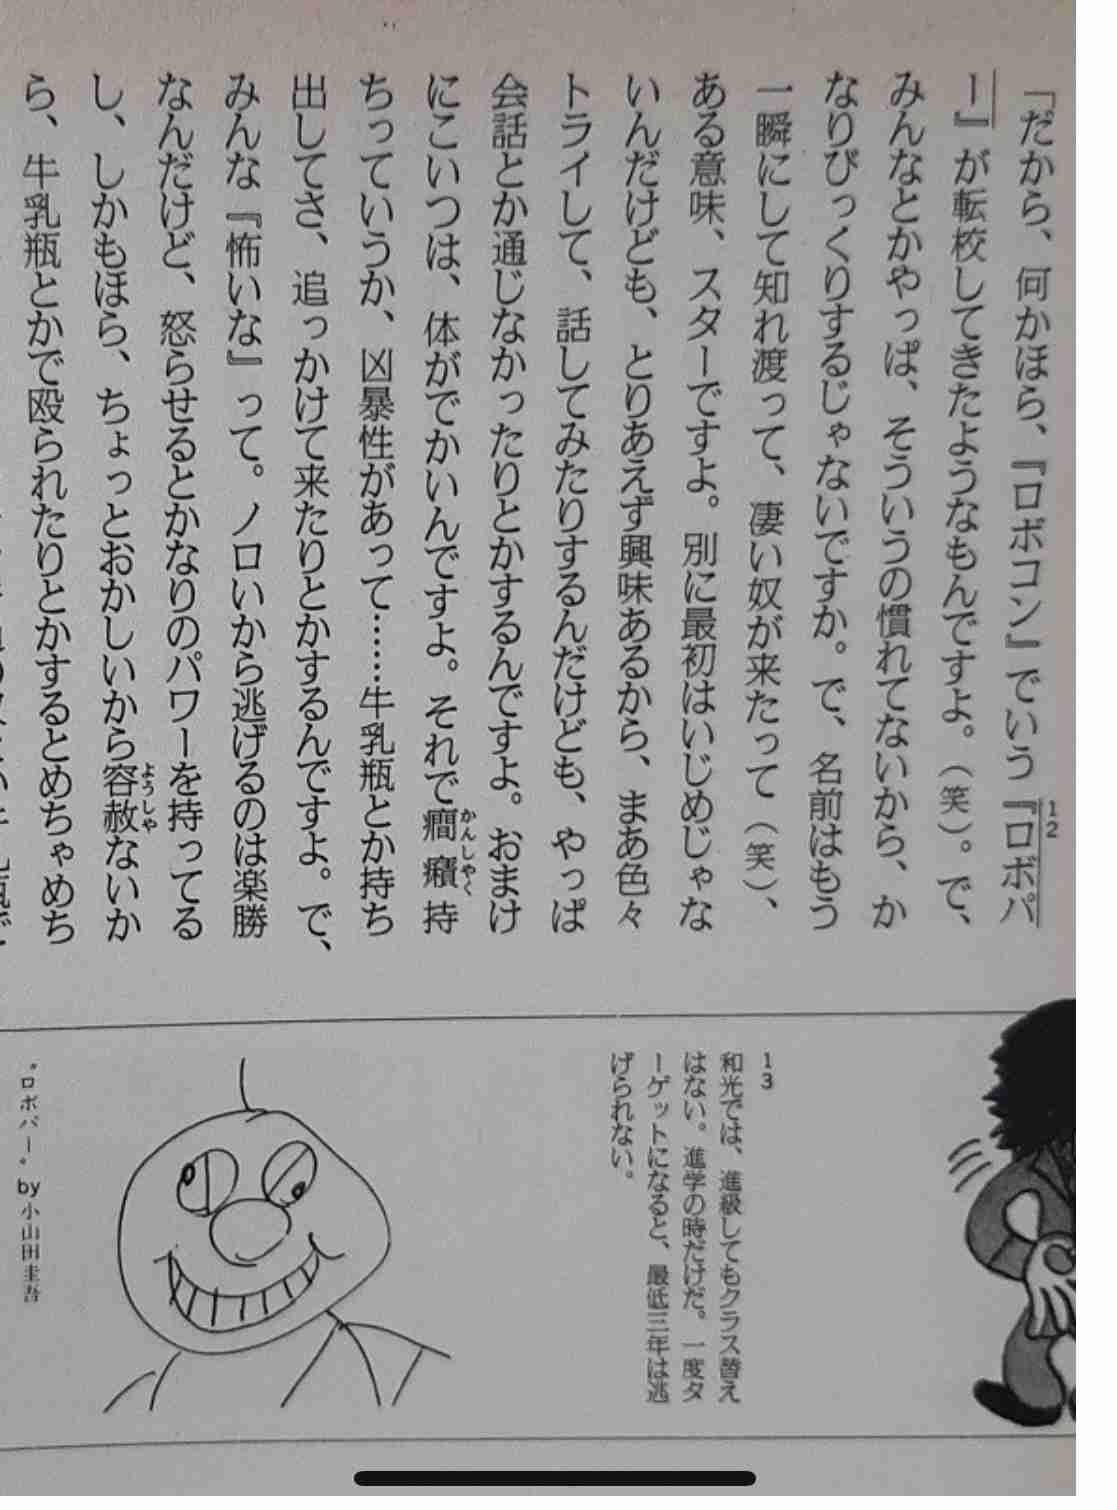 「だから、何かほら、『ロボコン』でいう『ロボパ
ー』が転校してきたようなもんですよ。（笑）。で、
みんなとかやっぱ、そういうの慣れてないから、か
なりびっくりするじゃないですか。で、名前はもう
一瞬にして知れ渡って、凄い奴が来たって（笑）、
ある意味、スターですよ。別に最初はいじめじゃな
いんだけども、とりあえず興味あるから、まあ色々
トライして、話してみたりするんだけども、やっぱ
会話とか通じなかったりとかするんですよ。おまけ
にこいつは、体がでかいんですよ。それで癇癪持
かんしゃく
ちっていうか、凶暴性があって……牛乳瓶とか持ち
出してさ、追っかけて来たりとかするんですよ。で、
みんな『怖いな』って。ノロいから逃げるのは楽勝
なんだけど、怒らせるとかなりのパワーを持ってる
し、しかもほら、ちょっとおかしいから容赦ないか
ようしゃ
ら、牛乳瓶とかで殴られたりとかするとめちゃめち
12
13
和光では、進級してもクラス替え
はない。進学の時だけだ。一度タ
ーゲットになると、最低三年は逃
げられない。
"ロボパー" by 小山田圭吾